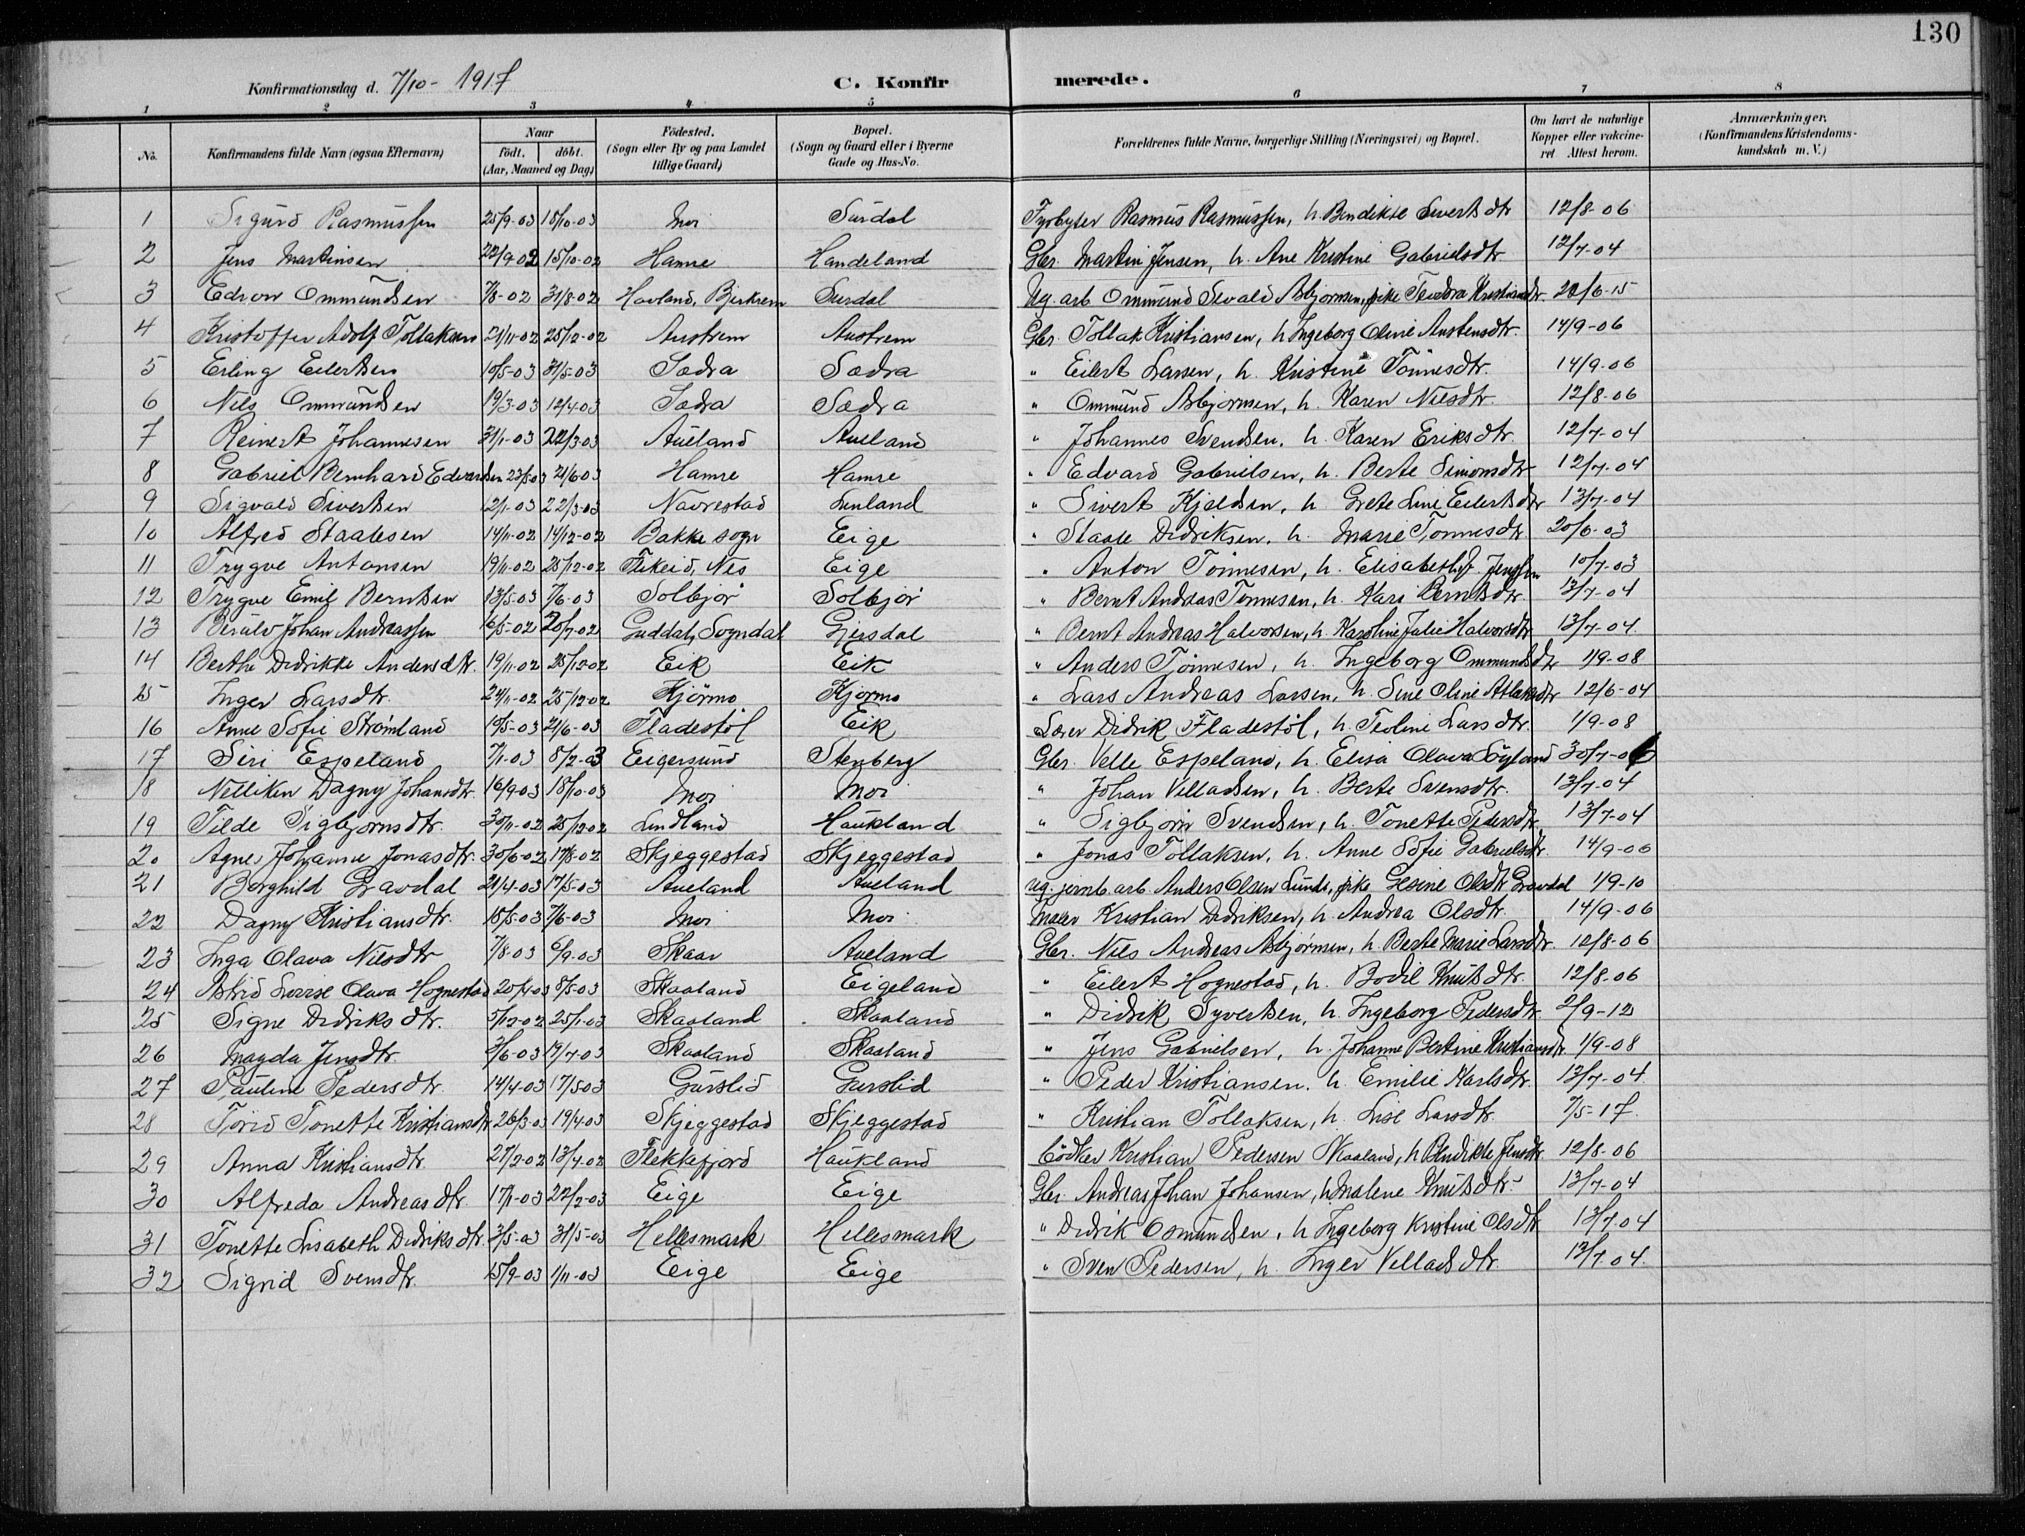 130
Konfirmationsdag d. 7/10 - 1917 C. Konfirmerede.
1 2 3 4 5 6 7 8
No. Konfirmandens fulde Navn (ogsaa Efternavn) Naar født. døbt. (Aar, Maaned og Dag) Fødested. (Sogn eller By og paa Landet tillige Gaard) Bopæl. (Sogn og Gaard eller i Byerne Gade og Hus-No. Forældrenes fulde Navne, borgerlige Stilling (Næringsvei) og Bopæl. Om havt de naturlige Kopper eller vakcineret Attest herom. Anmærkninger. (Konfirmandens Kristendomskundskab m. V.)
1 Sigurd Rasmussen 25/9-03 18/10-03 Moi Surdal Fyrbyter Rasmus Rasmussen, h. Bendikte Sivertsdtr 12/8-06
2 Jens Martinsen 22/9-02 15/10-02 Hamre Handeland Gbr. Martin Jensen, h. Ane Kristine Gabrielsdtr. 12/7-04
3 Edvon Ommundsen 7/8-02 31/8-02 Hovland, Bjerkrem Surdal Ug. arb. Ommund Sevald Asbjørnsen, pike Teodora Kristiansdtr 20/6-15
4 Kristoffer Adolf Tollaksen 21/11-02 25/12-02 Austrem Austrem Gbr. Tollak Kristiansen, h. Ingeborg Oline Austensdtr. 14/9-06
5 Erling Eilertsen 10/5-03 31/5-03 Sædra Sædra " Eilert Larsen, h. Kristine Tønnesdtr. 14/9-06
6 Nils Ommundsen 19/3-03 12/4-03 Sædra Sædra " Ommund Asbjørnsen, h. Karen Nilsdtr. 12/8-06
7 Reinert Johannesen 31/1-03 22/3-03 Aueland Aueland " Johannes Svendsen, h. Karen Eriksdtr. 12/7-04
8 Gabriel Bernhard Edvardsen 23/5-03 21/6-03 Hamre Hamre " Edvard Gabrielsen, h. Berte Simonsdtr 12/7-04
9 Sigvald Sivertsen 12/1-03 22/3-03 Navrestad Lunland " Sivert Kjeldsen, h. Grete Line Eilertsdtr 13/7-04
10 Alfred Staalesen 14/11-02 14/12-02 Bakke sogn Eige " Staale Didriksen, h. Marie Tønnesdtr. 20/6-03
11 Trygve Antonsen 19/11-02 25/12-02 Fikeid, Nes Eige " Anton Tønnesen, h. Elisabeth Jenssen 10/7-03
12 Trygve Emil Berntsen 13/5-03 7/6-03 Solbjør Solbjør " Bernt Andreas Tønnesen, h. Kari Berntsdtr. 13/7-04
13 Berulv Johan Andreassen 6/5-02 20/7-02 Guddal, Sogndal Gjersdal " Bernt Andreas Halvorsen, h. Karoline Julie Halvorsdtr 13/7-04
14 Berthe Didrikke Andersdtr. 19/11-02 25/12-02 Eik Eik " Anders Tønnesen, h. Ingeborg Ommundsdtr 1/9-08
15 Inger Larsdtr. 24/11-02 25/12-02 Kjørmo Kjørmo " Lars Andreas Larsen, h. Sine Oline Atlaksdtr 12/6-04
16 Anne Sofie Strømland 10/5-03 21/6-03 Fladestøl Eik Lærer Didrik Fladestøl, h. Teoline Larsdtr. 1/9-08
17 Siri Espeland 7/1-03 8/2-03 Eigersund Stenberg Gbr. Velle Espeland, h. Elisa Olava Søyland 30/7-06
18 Nelliken Dagny Johansdtr. 16/9-03 18/10-03 Moi Moi " Johan Villadsen, h. Berte Svensdtr. 13/7-04
19 Tilde Sigbjørnsdtr. 30/11-02 25/12-02 Lindland Haukland " Sigbjørn Svendsen, h. Tonette Pedersdtr. 13/7-04
20 Agnes Johanne Jonasdtr. 30/6-02 17/8-02 Skjeggestad Skjeggestad " Jonas Tollaksen, h. Anne Sofie Gabrielsdtr. 14/9-06
21 Borghild Gravdal 21/4-03 17/5-03 Aueland Aueland ug. jernb. arb. Anders Olsen Lunde, pike Gesine Olsdtr Gravdal 1/9-10
22 Dagny Kristiansdtr. 15/5-03 7/6-03 Moi Moi Maler Kristian Didriksen, h. Andrea Olsdtr. 14/9-06
23 Inga Olava Nilsdtr 7/8-03 6/9-03 Skaar Aueland Gbr. Nils Andreas Asbjørnsen, h. Berte Marie Larsdtr. 12/8-06
24 Astrid Lovise Olava Hognestad 20/4-03 8/5-03 Skaaland Eigeland " Eilert Hognestad, h. Bodil Knutsdtr. 12/8-06
25 Signe Didriksdtr. 5/12-02 25/1-03 Skaaland Skaaland " Didrik Syvertsen, h. Ingeborg Pedersdtr. 2/9-12
26 Magda Jensdtr. 3/6-03 19/7-03 Skaaland Skaaland " Jens Gabrielsen, h. Johanne Bertine Kristiansdtr. 1/9-08
27 Pauline Pedersdtr. 14/4-03 17/5-03 Gursled Gursled " Peder Kristiansen, h. Emilie Karlsdtr. 13/7-04
28 Torid Tonette Kristiansdtr 26/3-03 19/4-03 Skjeggestad Skjeggestad " Kristian Tollaksen, h. Lise Larsdtr. 7/5-17
29 Anna Kristiansdtr. 27/2-02 13/4-02 Flekkefjord Haukland Bødker Kristian Pedersen Skaaland, h. Bendikte Jensdtr. 12/8-06
30 Alfreda Andreasdtr. 17/1-03 22/2-03 Eige Eige Gbr. Andreas Johan Johansen, h. Malene Knutsdtr. 13/7-04
31 Tonette Lisabeth Didriksdtr. 3/5-03 31/5-03 Hellesmark Hellesmark " Didrik Osmundsen, h. Ingeborg Kristine Olsdtr. 13/7-04
32 Sigrid Svensdtr. 15/9-03 1/11-03 Eige Eige " Sven Pedersen, h. Inger Villadsdtr. 13/7-04